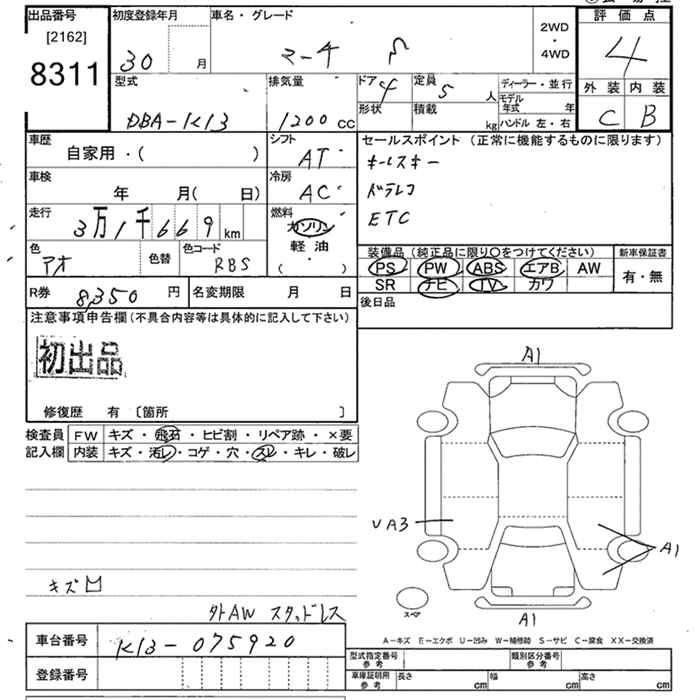 出品番号
[2162]
8311
初度登録年月
30 月
車名・グレード
マーチ
2WD
・
4WD
評価点
4
外装 内装
C B
型式
DBA-K13
排気量
1200 cc
ドア 4
形状
定員 5 人
積載 kg
ディーラー・並行
モデル年式 年
ハンドル 左・右
車歴
自家用・( )
シフト
AT
車検
年 月( 日)
冷房
AC
走行
3万1千669 km
燃料
ガソリン
軽油
( )
色
アオ
色替
色コード
RBS
セールスポイント (正常に機能するものに限ります)
キーレスキー
ドラレコ
ETC
装備品 (純正品に限り〇をつけてください)
PS PW ABS エアB AW
SR ナビ TV カワ
新車保証書
有・無
R券 8,350 円
名変期限 月 日
後日品
注意事項申告欄 (不具合内容等は具体的に記入して下さい)
初出品
修復歴 有 〔箇所 〕
検査員
記入欄
FW キズ・飛石・ヒビ割・リペア跡・×要
内装 キズ・汚レ・コゲ・穴・スレ・キレ・破レ
キズ
外AW スタッドレス
A1
UA3
A1
A1
スペア
A-キズ E-エクボ U-凹み W-補修跡 S-サビ C-腐食 XX-交換済
車台番号 K13-075920
登録番号
型式指定番号 参考
類別区分番号 参考
車庫証明用 参考
長さ cm 幅 cm 高さ cm